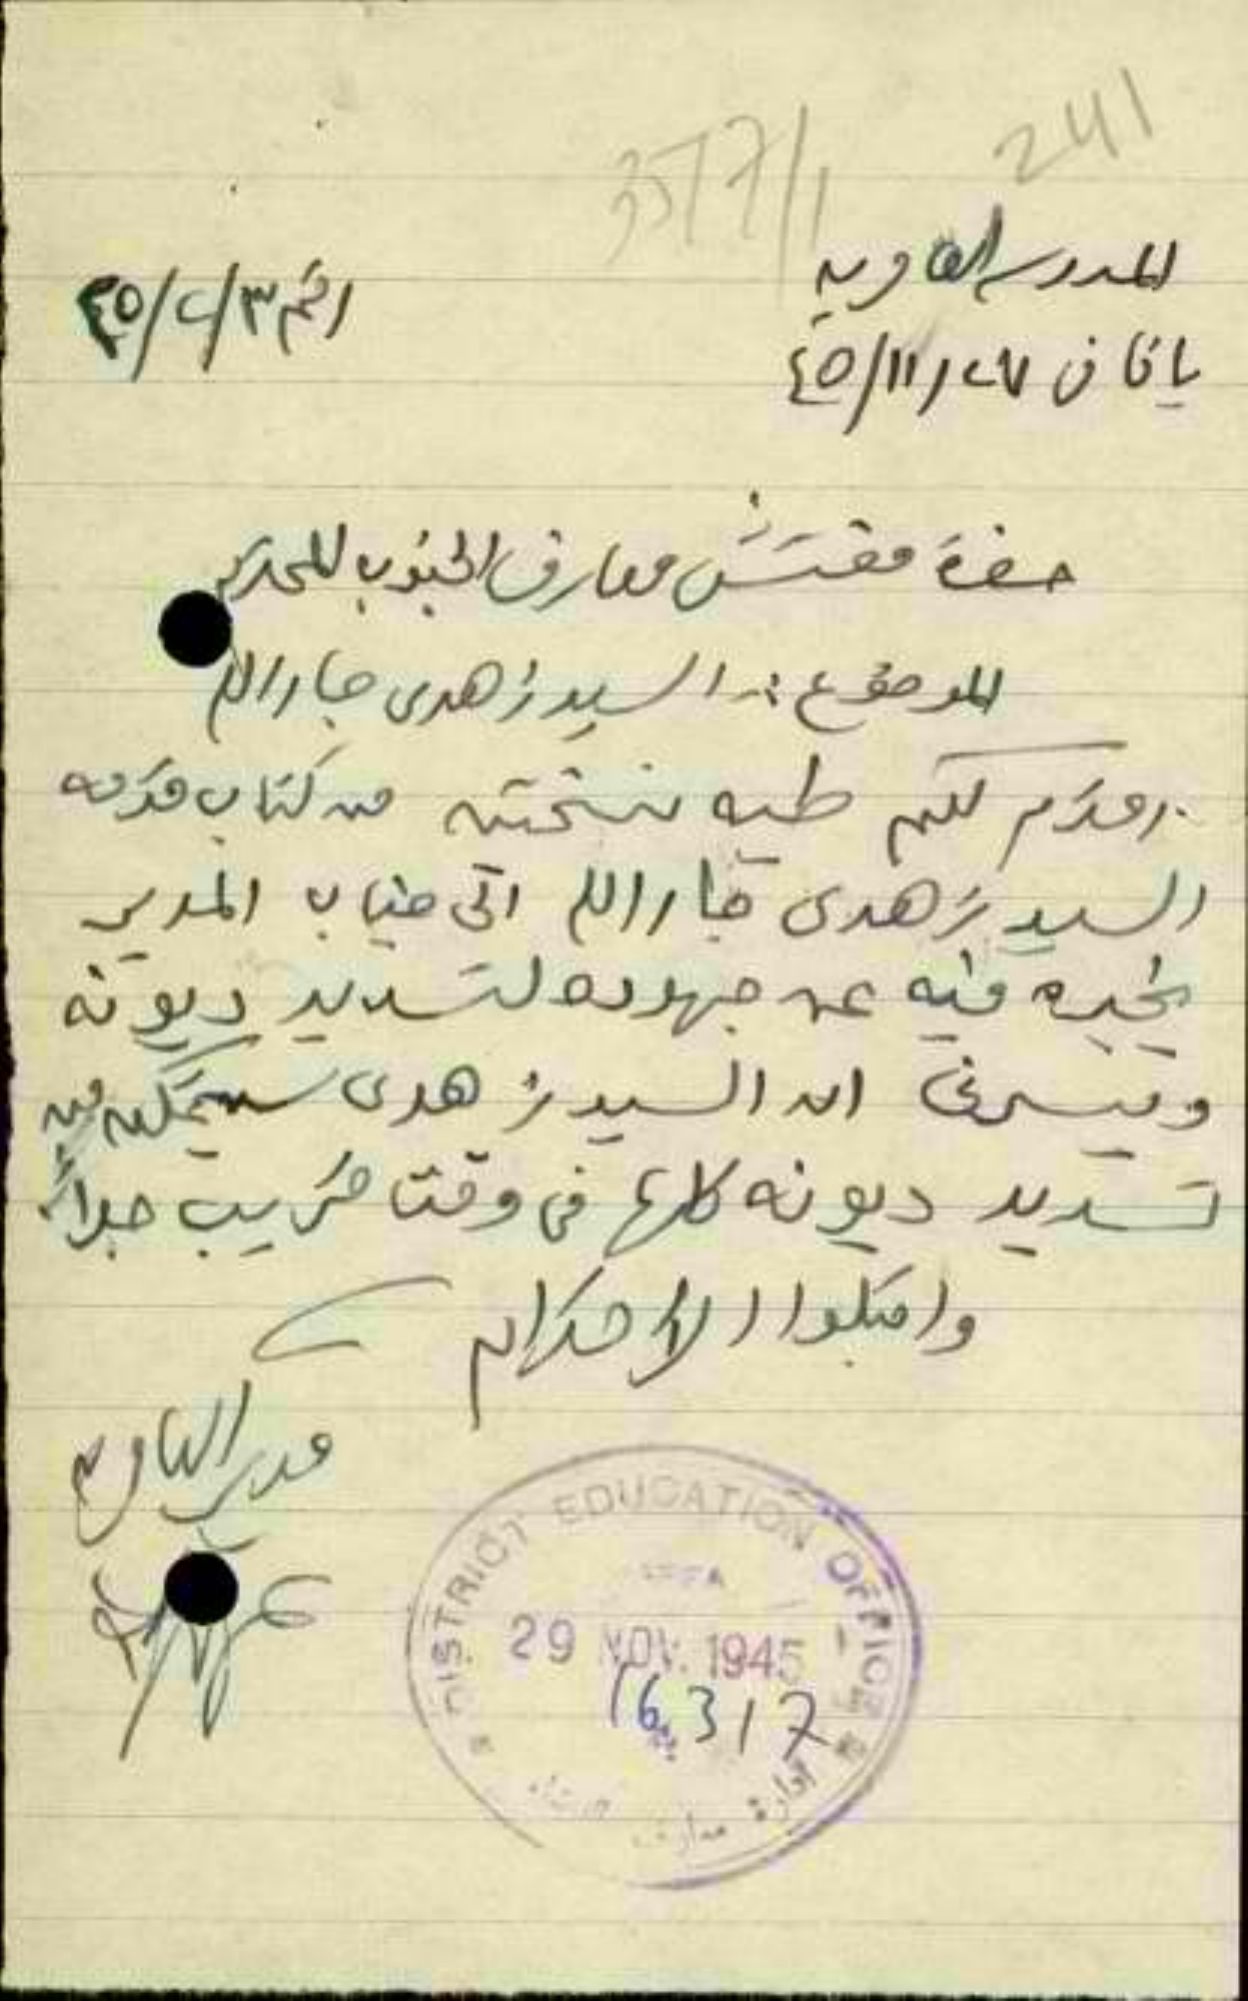 241
357/1
المدرسة الثانوية
يافا في ٢٧/١١/٤٥
الرقم ٣/٢/٤٥
حضرة مفتش معارف الجنوب المحترم
الموضوع :- السيد زهدي جارالله
اقدم لكم طيه نسختين من كتاب قدمه
السيد زهدي جارالله الى جناب المدير
يخبره فيه عن جهوده لتسديد ديونه
ويسرني ان السيد زهدي سيتمكن من
تسديد ديونه كلها في وقت قريب جداً
واقبلوا الاحترام
مدير الثانوية
DISTRICT EDUCATION OFFICE
29 NOV. 1945
16317
ادارة معارف